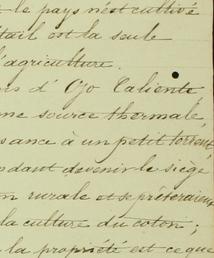 le pays n'est cultivé
tail est la seule
l'agriculture.
d'Ojo Caliente
une source thermale,
sance à un petit torrent,
ndant devenir le siège
on rurale et se prêteraient
la culture du coton ;
la propriété est ce que